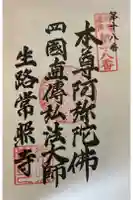 第廿八番
本尊阿弥陀佛
四國直傳弘法大師
生路常照寺